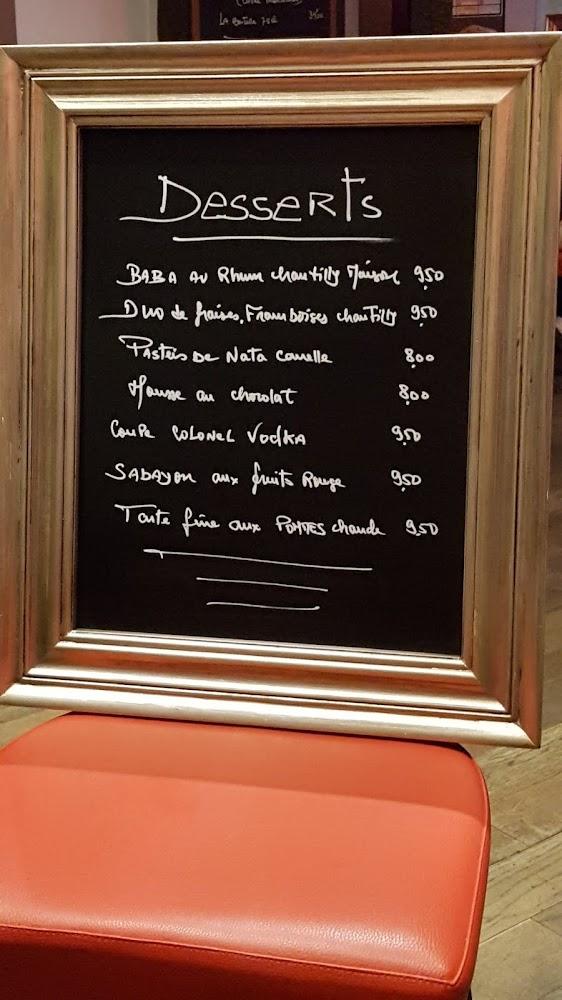 La Bouteille 75cl
Desserts
BABA au Rhum chantilly Maison 9,50
Duo de fraises, Framboises chantilly 9,50
Pasteis De Nata Canelle 8,00
Mousse au chocolat 8,00
Coupe COLONEL VodkA 9,50
SABAYON aux fruits Rouge 9,50
Tarte fine aux POMMES chaude 9,50